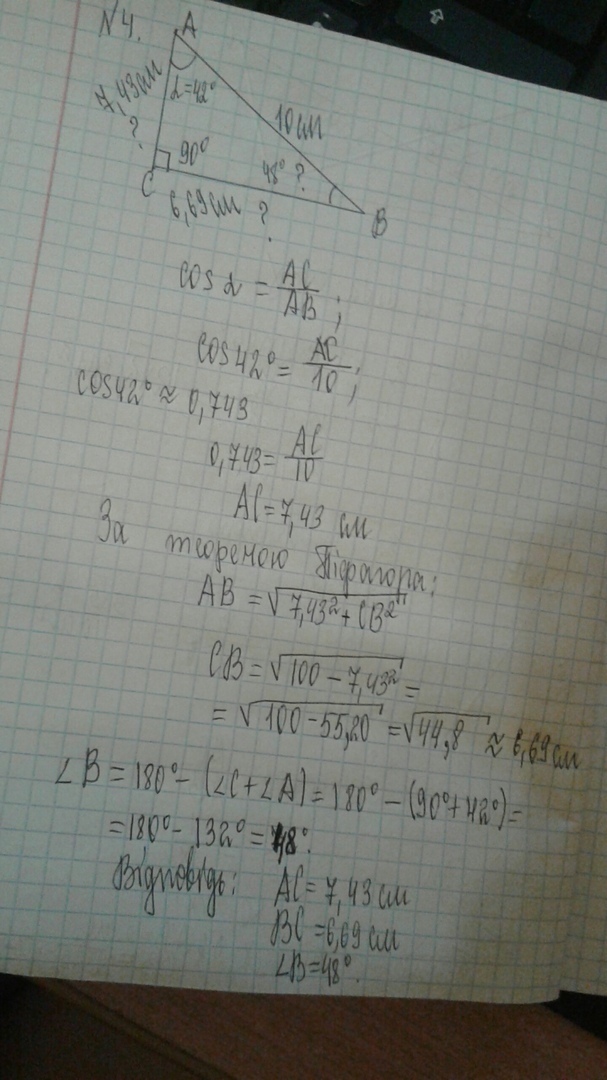 №4.
A
7,43см
?
α=42°
10см
90°
48° ?
C
6,69см ?
B
cos α = AC/AB;
cos 42° = AC/10;
cos42° ≈ 0,743
0,743 = AC/10
AC = 7,43 см
За теореною Піфагора:
AB = √7,43² + CB²
CB = √100 − 7,43² =
= √100 − 55,20 = √44,8 ≈ 6,69 см
∠B = 180° − (∠C + ∠A) = 180° − (90° + 42°) =
= 180° − 132° = 48°.
Відповідь: AC = 7,43 см
BC = 6,69 см
∠B = 48°.